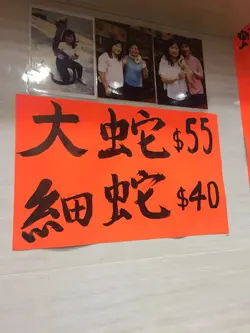 大蛇$55
細蛇$40